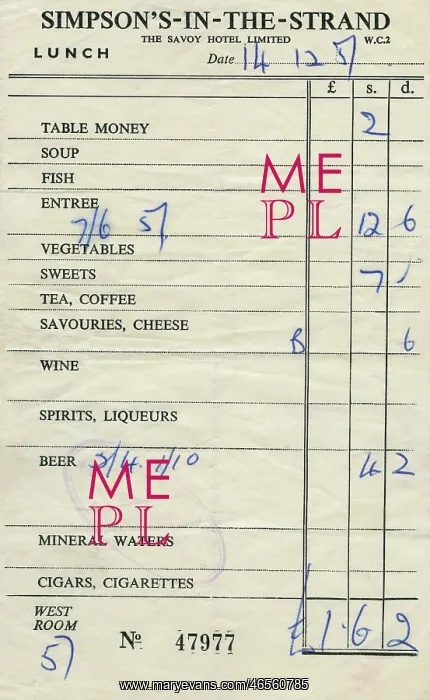 SIMPSON'S-IN-THE-STRAND
THE SAVOY HOTEL LIMITED W.C.2
LUNCH
Date 14 12 57
£ s. d.
TABLE MONEY 2
SOUP
FISH
ME
PL
ENTREE
7/6 5/ 12 6
VEGETABLES
SWEETS 7
TEA, COFFEE
SAVOURIES, CHEESE
B 6
WINE
SPIRITS, LIQUEURS
BEER 1/10 4 2
ME
PL
MINERAL WATERS
CIGARS, CIGARETTES
WEST
ROOM
£1 · 6 2
Nº 47977
www.maryevans.com/46560785